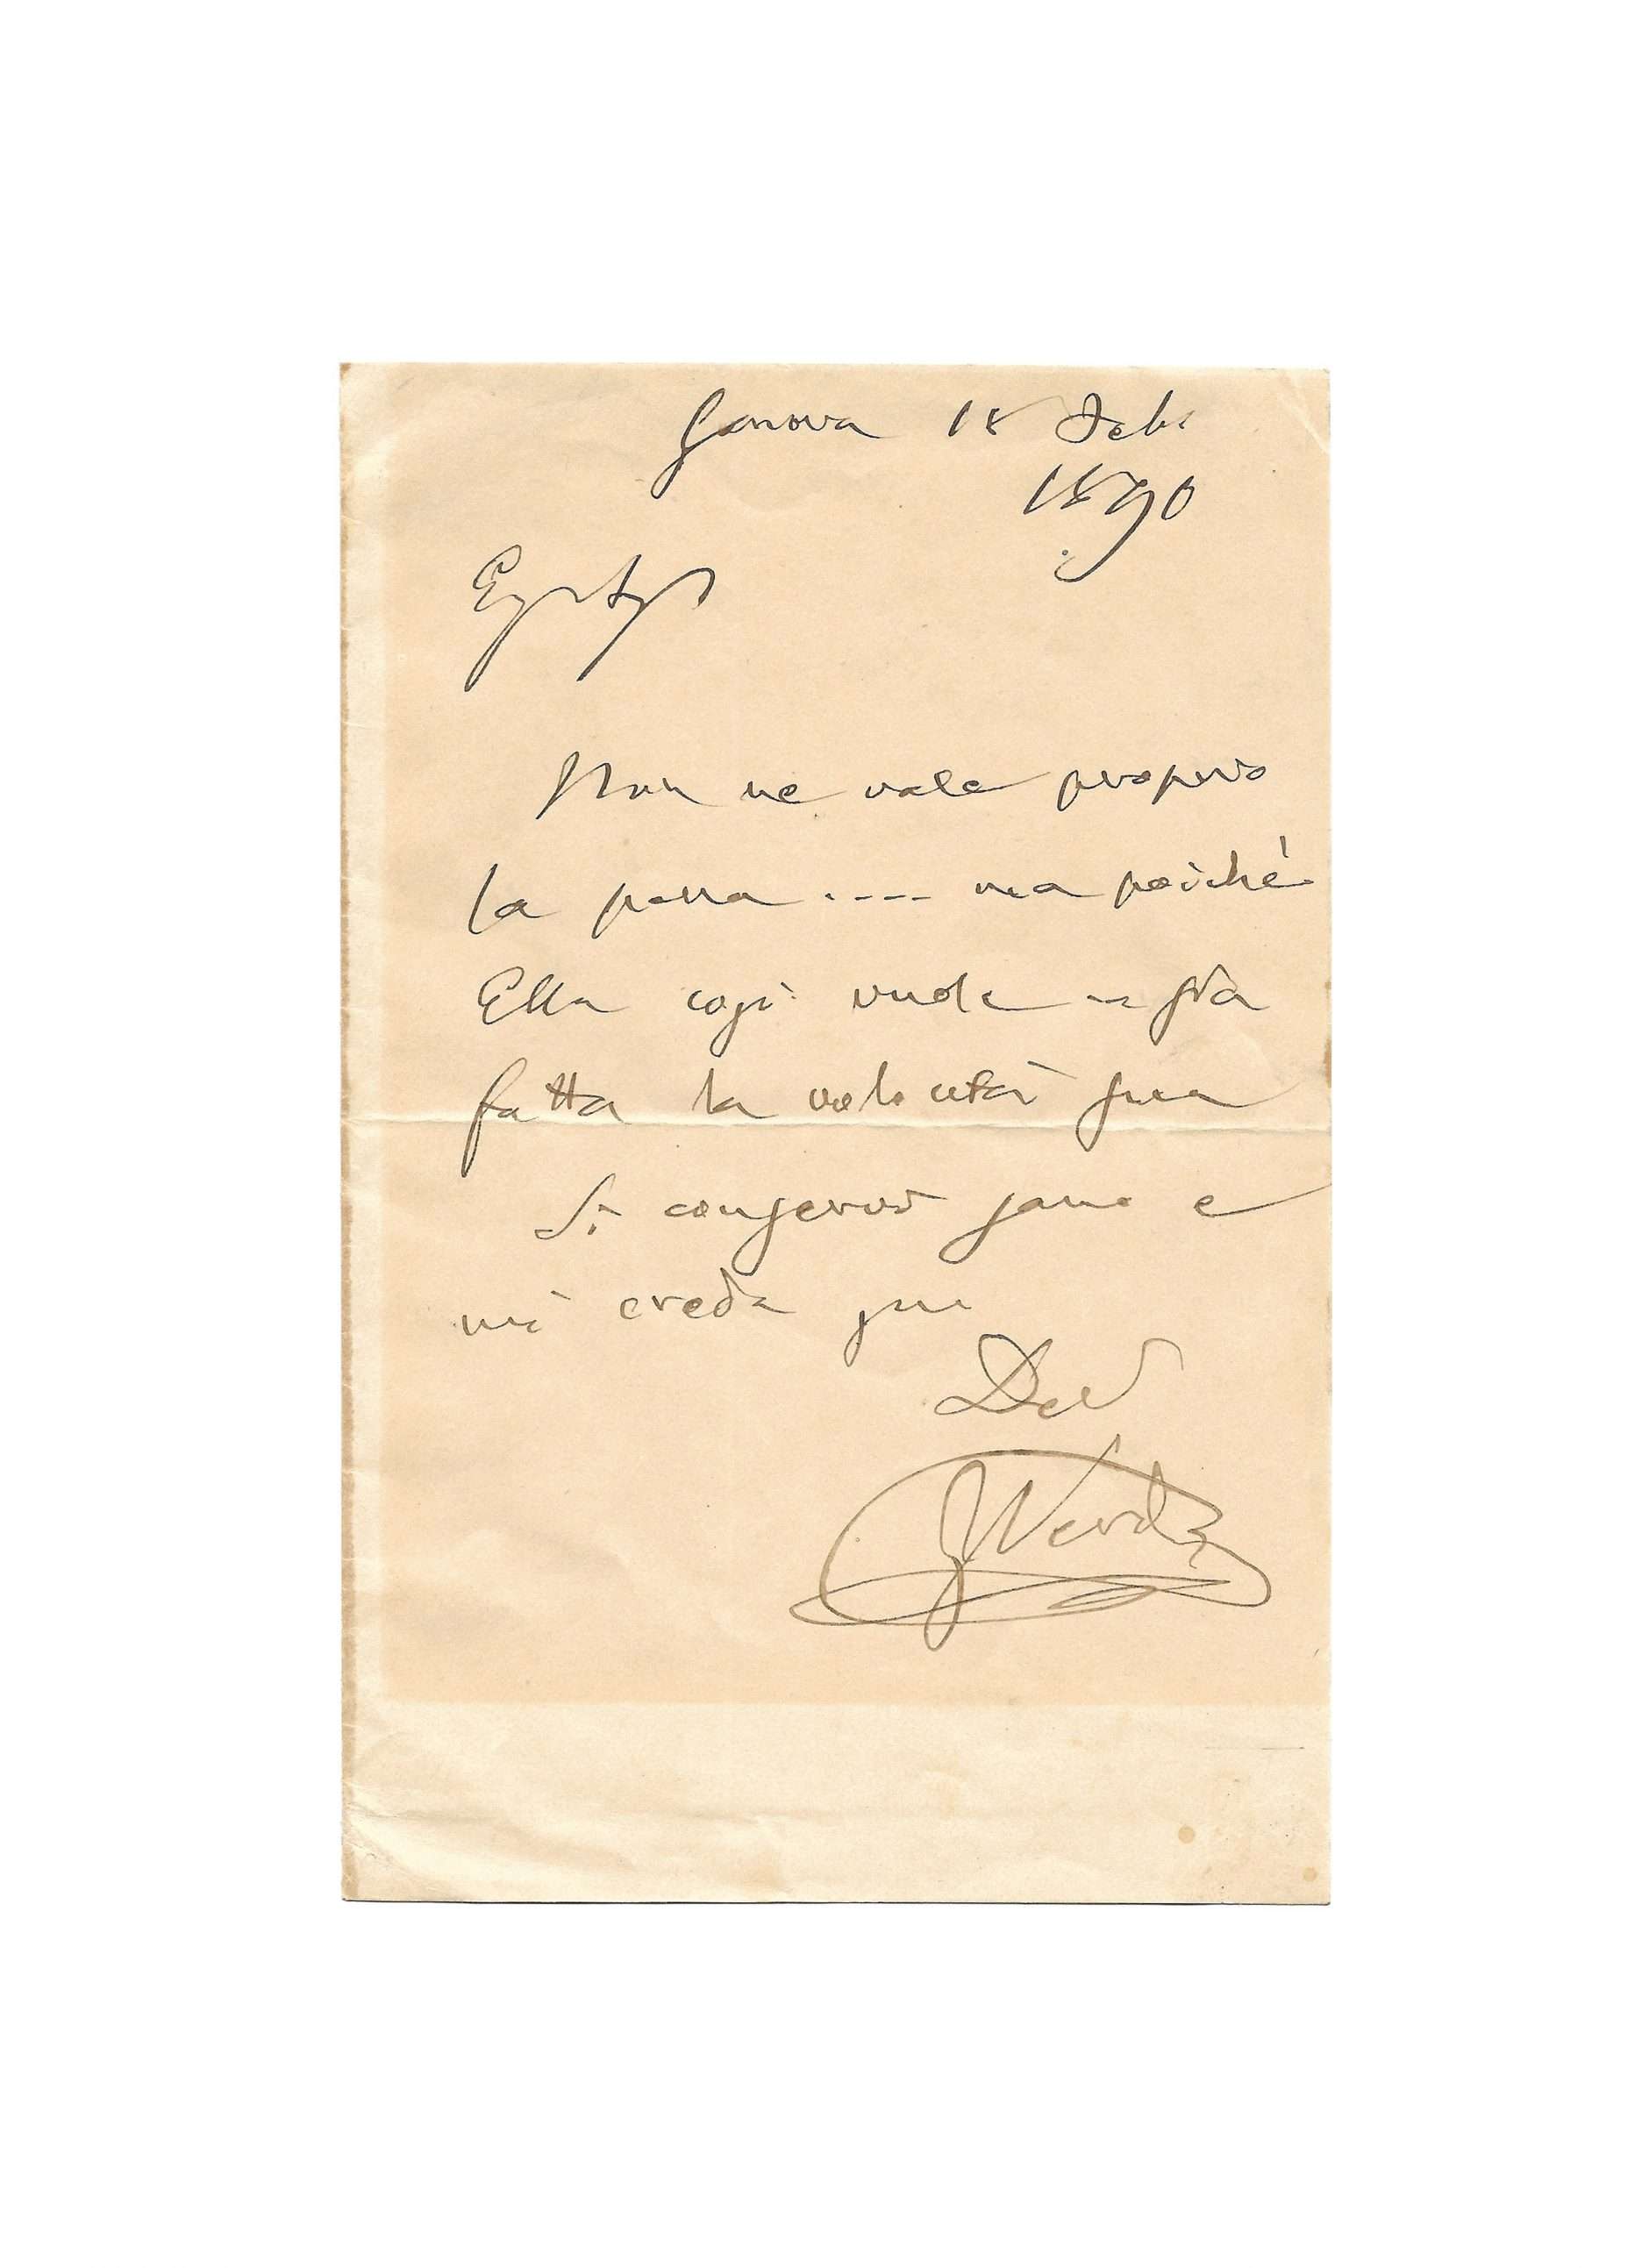 Genova 18 Feb:
1890
Non ne vale proprio
la pena .... ma poichè
Ella così vuole — sia
fatta la volontà sua
Si conservi sano e
mi creda suo
Dev
G Verdi